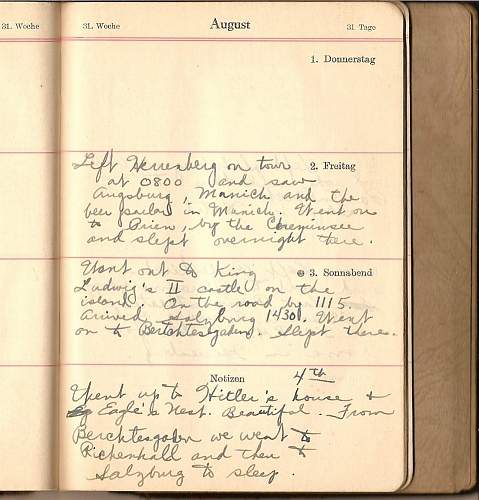 31. Woche
31. Woche August 31 Tage
1. Donnerstag
2. Freitag
Left Herrenberg on tour
at 0800 and saw
Augsburg, Munich and the
beer parlor in Munich. Went on
to Prien, by the Chiemsee
and slept overnight there.
3. Sonnabend
Went out to King
Ludwig's II castle on the
island. On the road by 1115.
Arived Salzburg 1430. Went
on to Berchtesgaden. Slept there.
Notizen 4th
Went up to Hitler's house +
Eagle's Nest. Beautiful. From
Berchtesgaden we went to
Richenhall and then to
Salzburg to sleep.